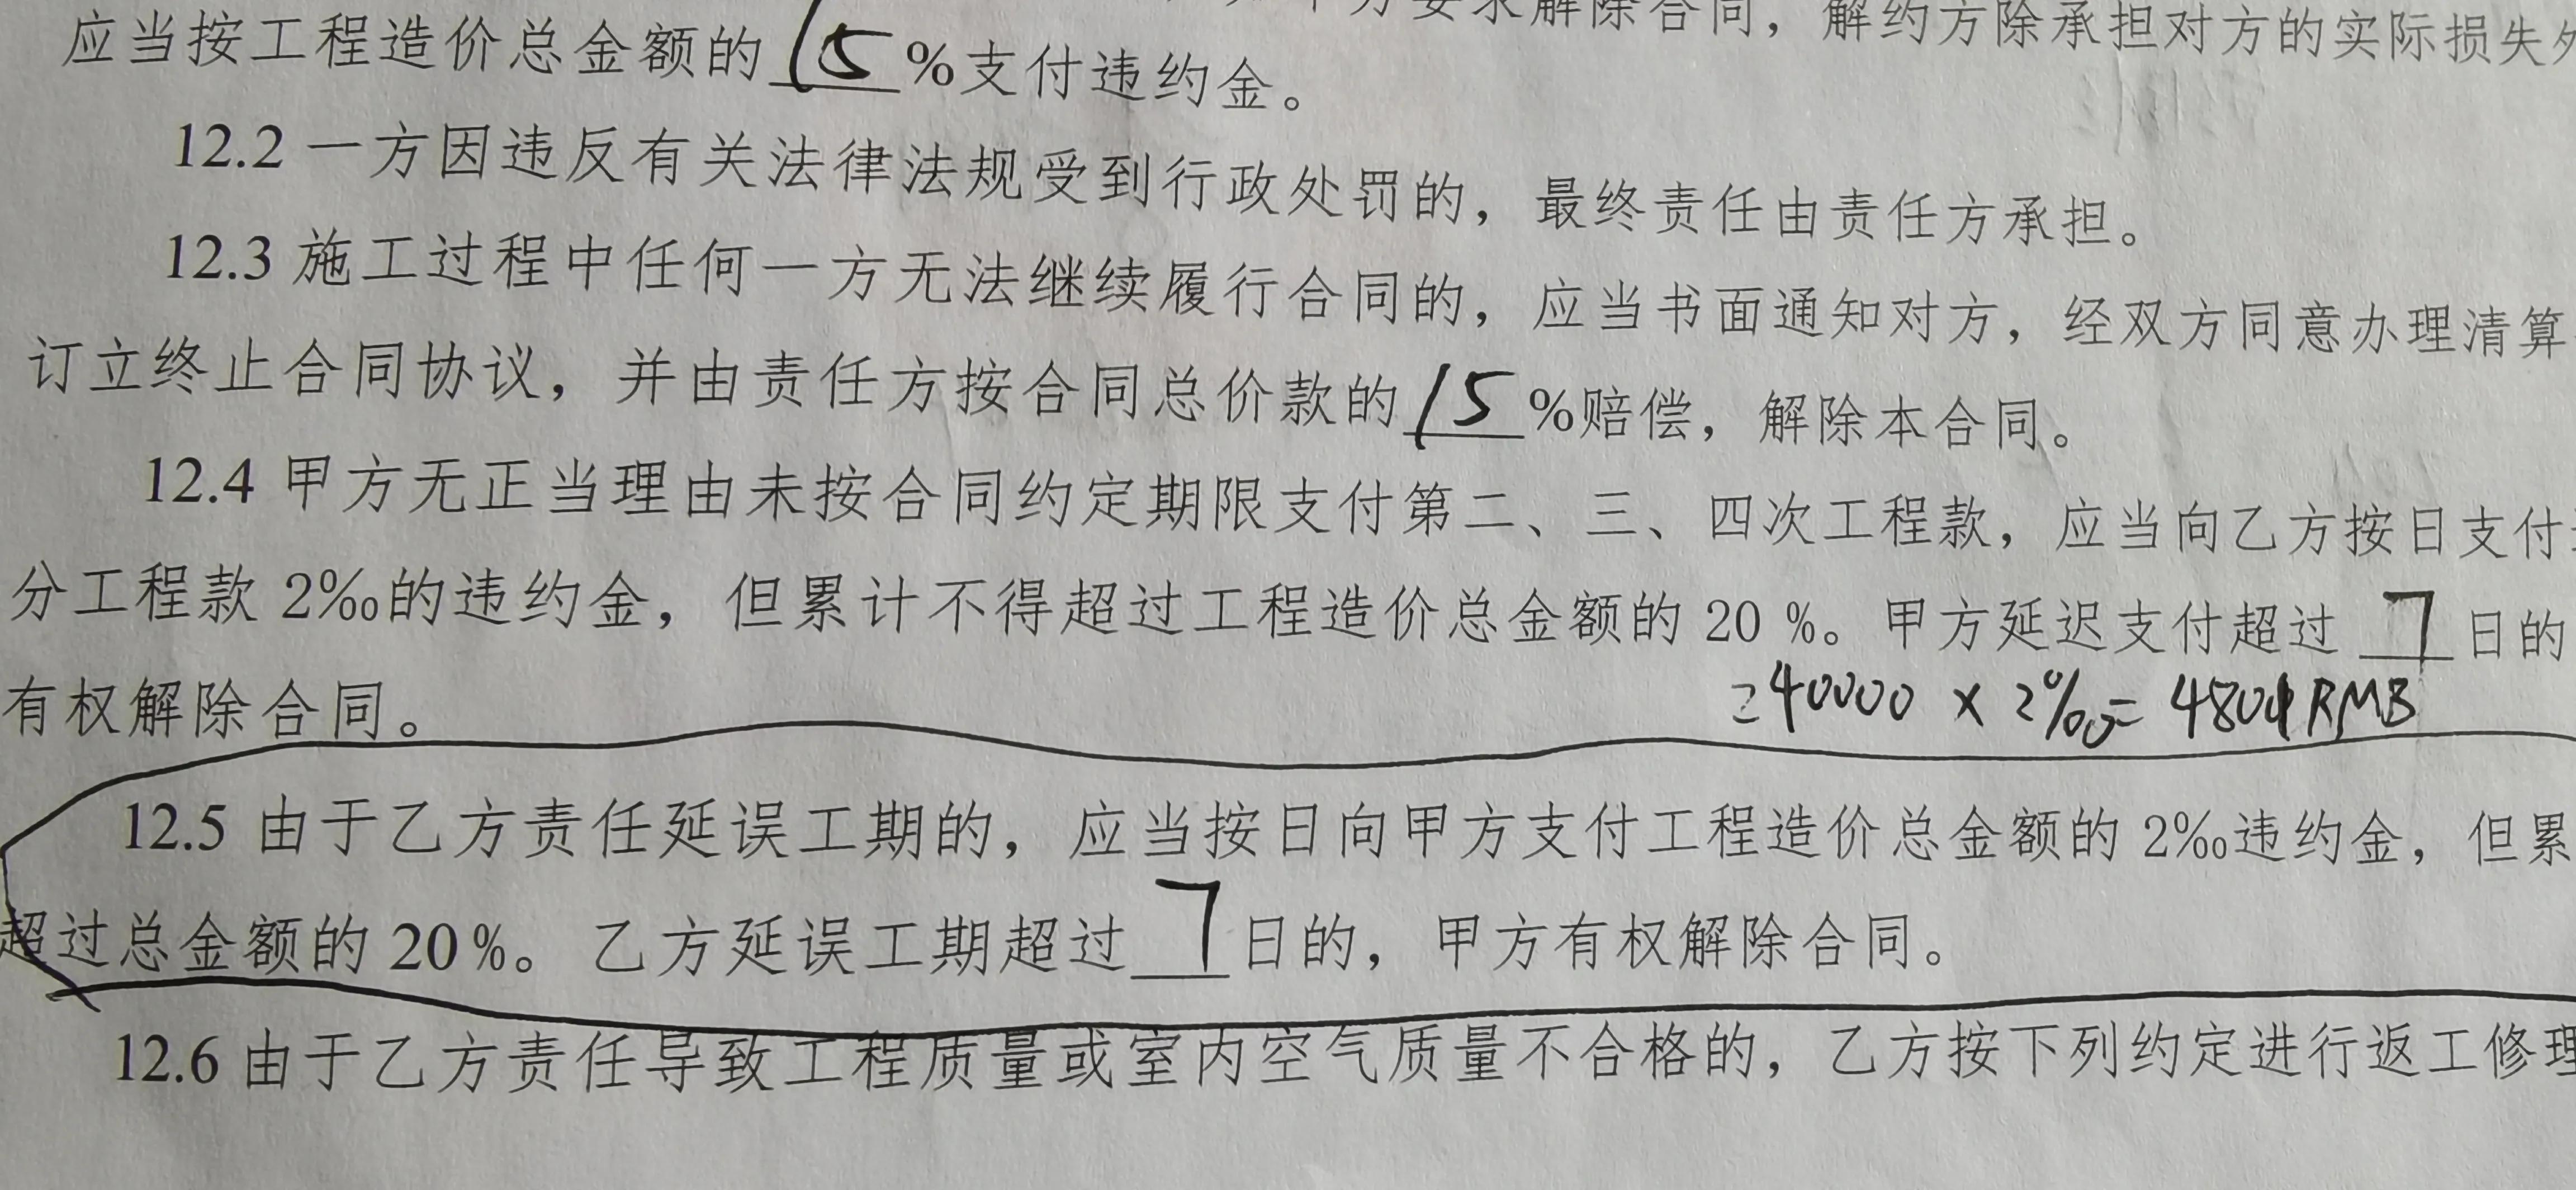 要求解除合同，解约方除承担对方的实际损失外
应当按工程造价总金额的15%支付违约金。
12.2 一方因违反有关法律法规受到行政处罚的，最终责任由责任方承担。
12.3 施工过程中任何一方无法继续履行合同的，应当书面通知对方，经双方同意办理清算
订立终止合同协议，并由责任方按合同总价款的15%赔偿，解除本合同。
12.4 甲方无正当理由未按合同约定期限支付第二、三、四次工程款，应当向乙方按日支付
分工程款 2‰的违约金，但累计不得超过工程造价总金额的 20 %。甲方延迟支付超过 7 日的
有权解除合同。
240000 × 2‰= 480 RMB
12.5 由于乙方责任延误工期的，应当按日向甲方支付工程造价总金额的 2‰违约金，但累
超过总金额的 20%。乙方延误工期超过 7 日的，甲方有权解除合同。
12.6 由于乙方责任导致工程质量或室内空气质量不合格的，乙方按下列约定进行返工修理